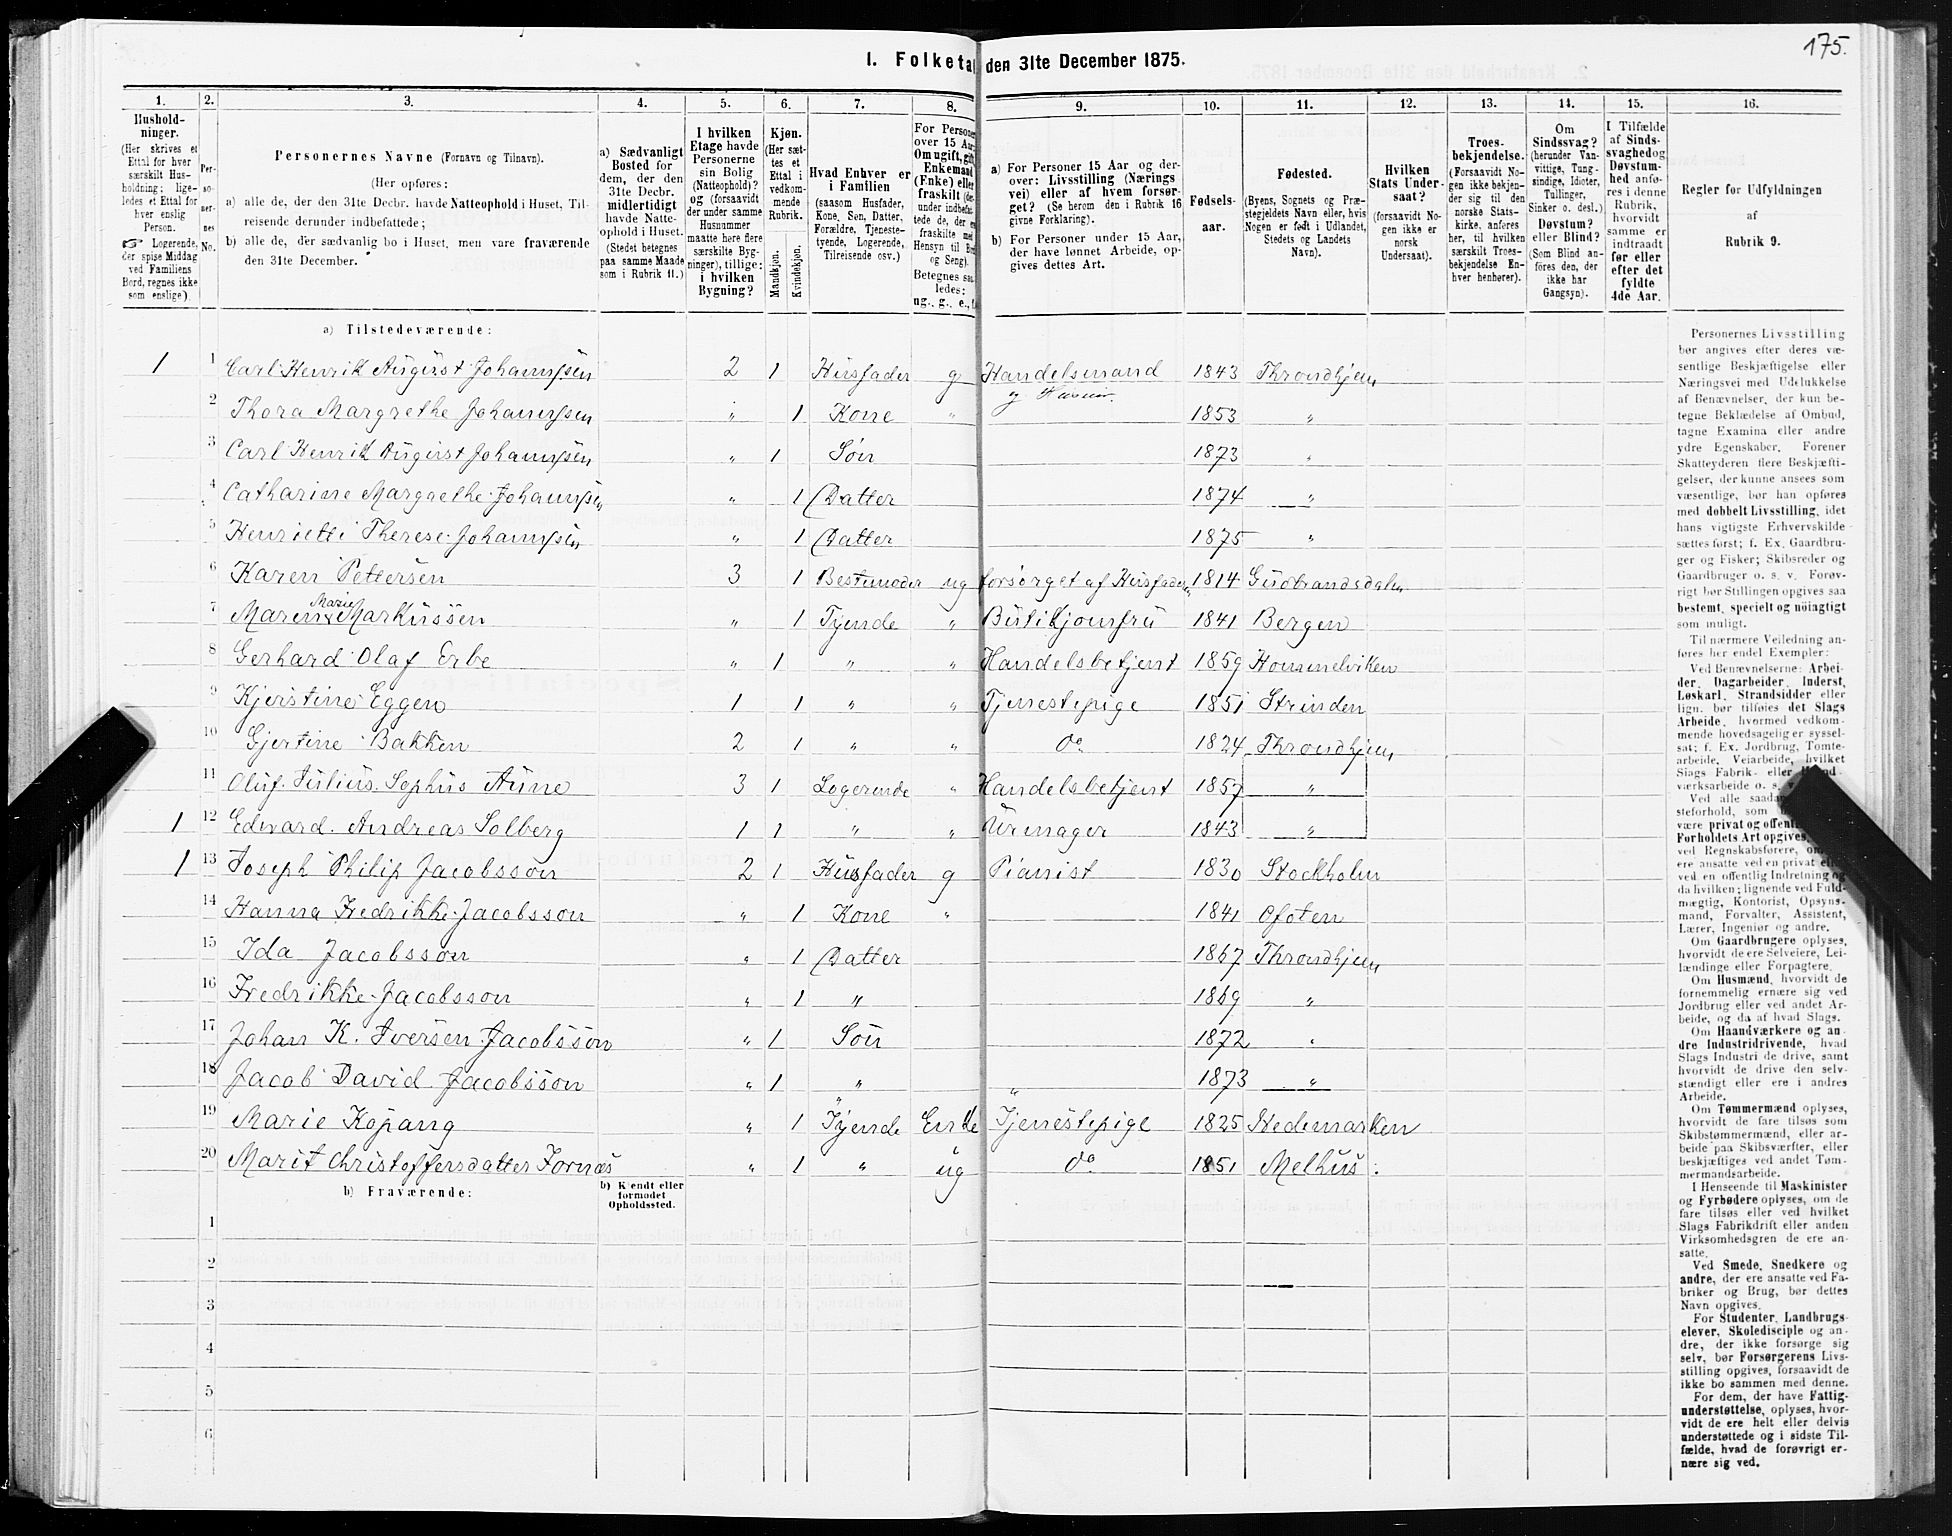 175.
I. Folketal den 31te December 1875.
1. 2. 3. 4. 5. 6. 7. 8. 9. 10. 11. 12. 13. 14. 15. 16.
Hushold-
ninger.
(Her skrives et
Ettal for hver
særskilt Hus-
holdning; lige-
ledes et Ettal for
hver enslig
Person.
☞ Logerende,
der spise Middag
ved Familiens
Bord, regnes ikke
som enslige).
Per-
so-
ner-
nes
No.
Personernes Navne (Fornavn og Tilnavn).
(Her opføres:
a) alle de, der den 31te Decbr. havde Natteophold i Huset, Til-
reisende derunder indbefattede;
b) alle de, der sædvanlig bo i Huset, men vare fraværende
den 31te December.
a) Sædvanligt
Bosted for
dem, der den
31te Decbr.
midlertidigt
havde Natte-
ophold i Huset.
(Stedet betegnes
paa samme Maade
som i Rubrik 11.)
I hvilken
Etage havde
Personerne
sin Bolig
(Natteophold)?
og (forsaavidt
der under samme
Husnummer
maatte høre flere
særskilte Byg-
ninger), tillige:
i hvilken
Bygning?
Kjøn.
(Her sæt-
tes et
Ettal i
vedkom-
mende
Rubrik.
Mandkjøn.
Kvindekjøn.
Hvad Enhver er
i Familien
(saasom Husfader,
Kone, Søn, Datter,
Forældre, Tjeneste-
tyende, Logerende,
Tilreisende osv.)
For Personer
over 15 Aar:
Om ugift, gift,
Enkemand
(Enke) eller
fraskilt (der-
under indbefat-
tede de, der ere
fraskilte med
Hensyn til Bord
og Seng).
Betegnes saa-
ledes:
ug., g., e., f.
a) For Personer 15 Aar og der-
over: Livsstilling (Nærings-
vei) eller af hvem forsør-
get? (Se herom den i Rubrik 16
givne Forklaring).
b) For Personer under 15 Aar,
der have lønnet Arbeide, op-
gives dettes Art.
Fødsels-
aar.
Fødested.
(Byens, Sognets og Præ-
stegjeldets Navn eller, hvis
Nogen er født i Udlandet,
Stedets og Landets
Navn).
Hvilken
Stats Under-
saat?
(forsaavidt No-
gen ikke er
norsk
Undersaat).
Troes-
bekjendelse.
(Forsaavidt No-
gen ikke bekjen-
der sig til den
norske Stats-
kirke, anføres
her, til hvilken
særskilt Troes-
bekjendelse En-
hver henhører).
Om
Sindssvag?
(herunder Van-
vittige, Tung-
sindige, Idioter,
Tullinger,
Sinker o. desl.)
Døvstum?
eller Blind?
(Som Blind an-
føres den, der
ikke har
Gangsyn).
I Tilfælde
af Sinds-
svaghed og
Døvstum-
hed anfø-
res i denne
Rubrik,
hvorvidt
samme er
indtraadt
før eller
efter det
fyldte
4de Aar.
Regler for Udfyldningen
af
Rubrik 9.
a) Tilstedeværende:
1 1 Carl Henrik August Johannssen 2 1 Husfader g Handelsmand 1843 Throndhjem
2 Thora Margrethe Johannssen " 1 Kone " 1853 "
3 Carl Henrik August Johannssen " 1 Søn 1873 "
4 Catharine Margrethe Johannssen " 1 Datter 1874 "
5 Henriette Therese Johannssen " 1 Datter 1875 "
6 Karen Pettersen 3 1 Bestemoder ug forsørget af Husfaderen 1814 Gudbrandsdalen
7 Maren Marie Markussen " 1 Tyende " Butikjomfru 1841 Bergen
8 Gerhard Olaf Erbe " 1 " " Handelsbetjent 1859 Hommelviken
9 Kjerstine Eggen 1 1 " " Tjenestepige 1851 Strinden
10 Gjertine Bakken 2 1 " " do 1824 Throndhjem
11 Oluf Julius Sophus Aune 3 1 Logerende " Handelsbetjent 1857 "
1 12 Edward Andreas Solberg 1 1 " " Urmager 1843 "
1 13 Joseph Philip Jacobsson 2 1 Husfader g Pianist 1830 Stockholm
14 Hanna Fredrikke Jacobsson " 1 Kone " 1841 Ofoten
15 Ida Jacobsson " 1 Datter 1867 Throndhjem
16 Fredrikke Jacobsson " 1 " 1869 "
17 Johan K. Iversen Jacobsson " 1 Søn 1872 "
18 Jacob David Jacobsson " 1 " " 1873 "
19 Marie Kopang " 1 Tyende Enke Tjenestepige 1825 Hedemarken
20 Marit Christoffersdatter Fornæs " 1 " ug do 1851 Melhus.
b) Fraværende:
b) Kjendt eller
formodet
Opholdssted.
1
2
3
4
5
6
Personernes Livsstilling
bør angives efter deres væ-
sentlige Beskjæftigelse eller
Næringsvei med Udelukkelse
af Benævnelser, der kun be-
tegne Beklædelse af Ombud,
tagne Examina eller andre
ydre Egenskaber. Forener
Skatteyderen flere Beskjæfti-
gelser, der kunne ansees som
væsentlige, bør han opføres
med dobbelt Livsstilling, idet
hans vigtigste Erhvervskilde
sættes først; f. Ex. Gaardbru-
ger og Fisker; Skibsreder og
Gaardbruger o. s. v. Forøv-
rigt bør Stillingen opgives saa
bestemt, specielt og nöiagtigt
som muligt.
Til nærmere Veiledning an-
føres her endel Exempler:
Ved Benævnelserne: Arbei-
der, Dagarbeider, Inderst,
Løskarl, Strandsidder eller
lign. bør tilføies det Slags
Arbeide, hvormed vedkom-
mende hovedsagelig er syssel-
sat; f. Ex. Jordbrug, Tomte-
arbeide, Veiarbeide, hvilket
Slags Fabrik- eller Haand-
værksarbeide o. s. v.
Ved alle saadanne
steforhold, som
være privat og offentl
Forholdets Art opgives,
ved Regnskabsførere, om
ere ansatte ved en privat eller
ved en offentlig Indretning og
da hvilken; lignende ved Fuld-
mægtig, Kontorist, Opsyns-
mand, Forvalter, Assistent,
Lærer, Ingeniør og andre.
Om Gaardbrugere oplyses,
hvorvidt de ere Selveiere, Lei-
lændinge eller Forpagtere.
Om Husmænd, hvorvidt de
fornemmelig ernære sig ved
Jordbrug eller ved andet Ar-
beide, og da af hvad Slags.
Om Haandværkere og an-
dre Industridrivende, hvad
Slags Industri de drive, samt
hvorvidt de drive den selv-
stændigt eller ere i andres
Arbeide.
Om Tømmermænd oplyses,
hvorvidt de fare tilsøs som
Skibstømmermænd, eller ar-
beide paa Skibsværfter, eller
beskjæftiges ved andet Tøm-
mermandsarbeide.
I Henseende til Maskinister
og Fyrbødere oplyses, om de
fare tilsøs eller ved hvilket
Slags Fabrikdrift eller anden
Virksomhedsgren de ere an-
satte.
Ved Smede, Snedkere og
andre, der ere ansatte ved Fa-
briker og Brug, bør dettes
Navn opgives.
For Studenter, Landbrugs-
elever, Skoledisciple og an-
dre, der ikke forsørge sig
selv, bør Forsørgerens Livs-
stilling opgives, forsaavidt de
ikke bo sammen med denne.
For dem, der have Fattig-
understøttelse, oplyses, hvor-
vidt de ere helt eller delvis
understøttede og i sidste Til-
fælde, hvad de forøvrigt er-
nære sig ved.